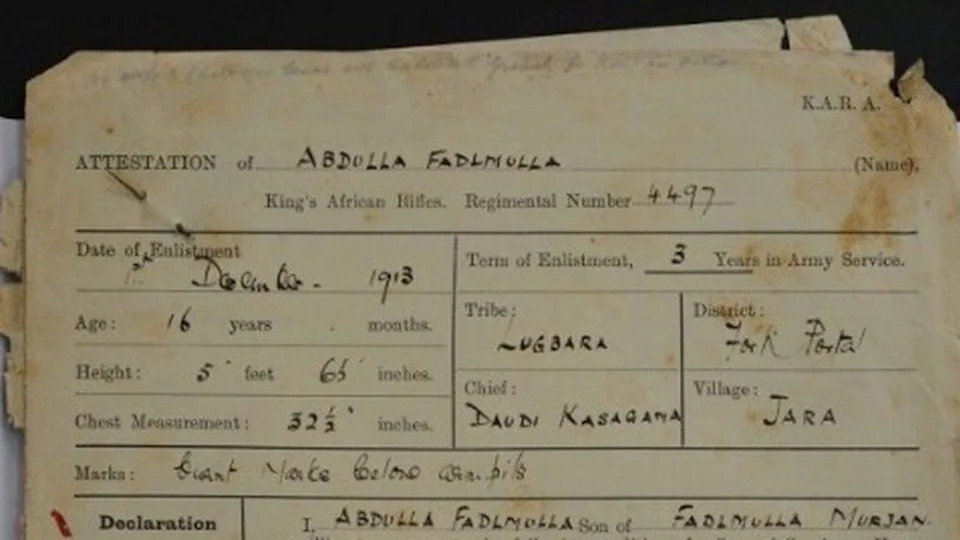 K.A.R. A.
ATTESTATION of ABDULLA FADLMULLA (Name),
King's African Rifles. Regimental Number 4497
Date of Enlistment
1st December. 1913
Term of Enlistment, 3 Years in Army Service.
Age: 16 years . months.
Tribe: LUGBARA
District: Fort Portal
Height: 5 feet 6½ inches.
Chief: DAUDI KASAGAMA
Village: JARA
Chest Measurement: 32 ½ inches.
Marks: burnt Marks below armpits
Declaration
I, ABDULLA FADLMULLA Son of FADLMULLA MURJAN.